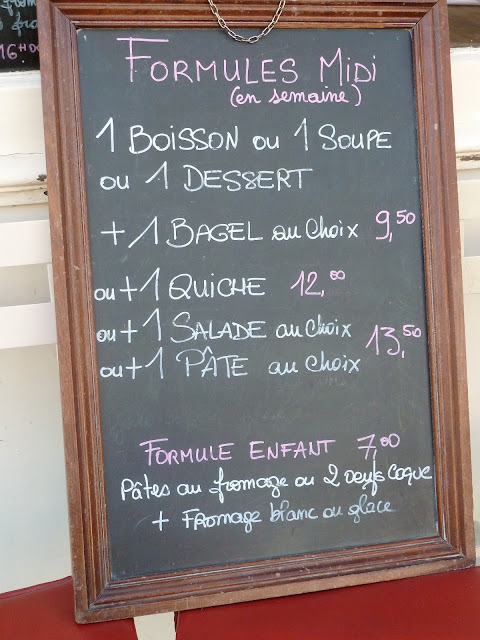 16H00
FORMULES MIDI
(en semaine)
1 BOISSON ou 1 SOUPE
ou 1 DESSERT
+ 1 BAGEL au choix 9,50
ou + 1 QUICHE 12,00
ou + 1 SALADE au choix 13,50
ou + 1 PÂTE au choix
FORMULE ENFANT 7,00
Pâtes au fromage ou 2 oeufs coque
+ FROMAGE blanc ou glace